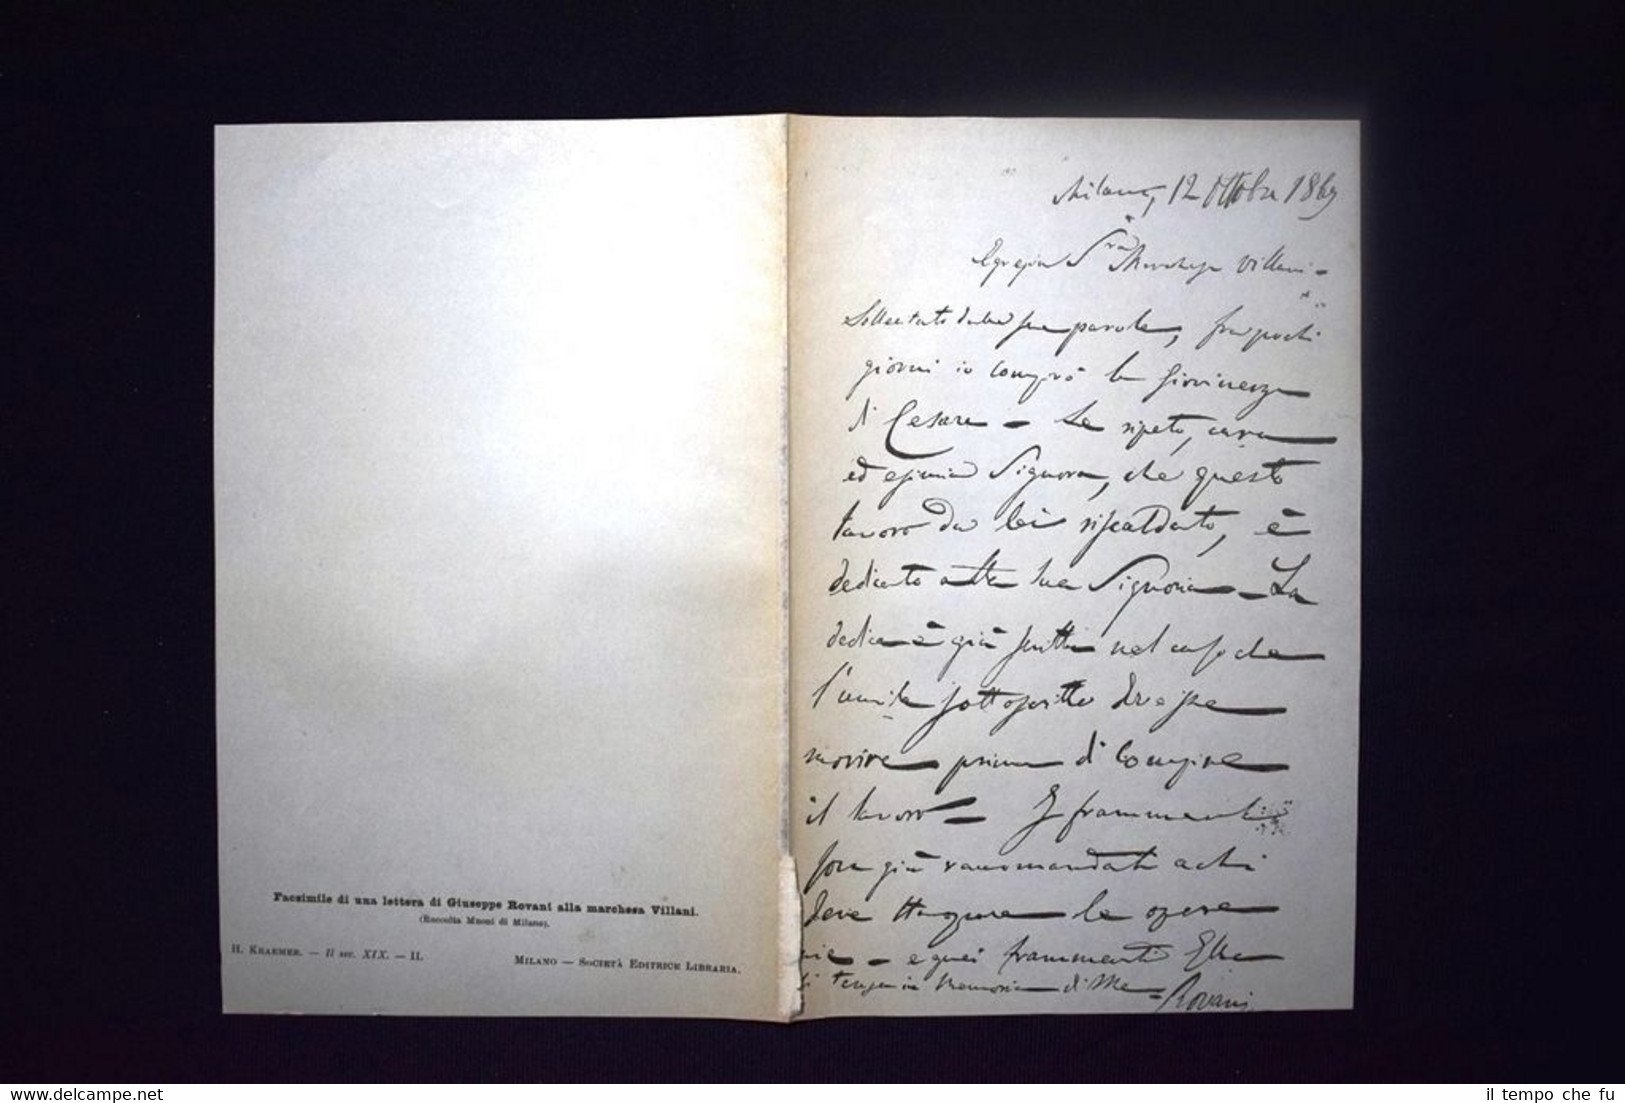 Milano, 12 Ottobre 1869
Egregia S.ra Marchesa Villani -
Sollecitato dalle sue parole, fra pochi
giorni io compirò la Giovinezza
di Cesare - Le ripeto, cara
ed esimia Signora, che questo
lavoro da lei riscaldato, è
dedicato alla sua Signoria - La
dedica è già scritta nel caso che
l'umile sottoscritto dovesse
morire prima di compire
il lavoro - I frammenti
son già raccomandati a chi
deve stampare le opere
mie - e quei frammenti Ella
li tenga in memoria di Me -
Rovani
Facsimile di una lettera di Giuseppe Rovani alla marchesa Villani.
(Raccolta Muoni di Milano).
H. Kraemer. — Il sec. XIX. — II.
Milano — Società Editrice Libraria.
il tempo che fu
https://www.delcampe.net